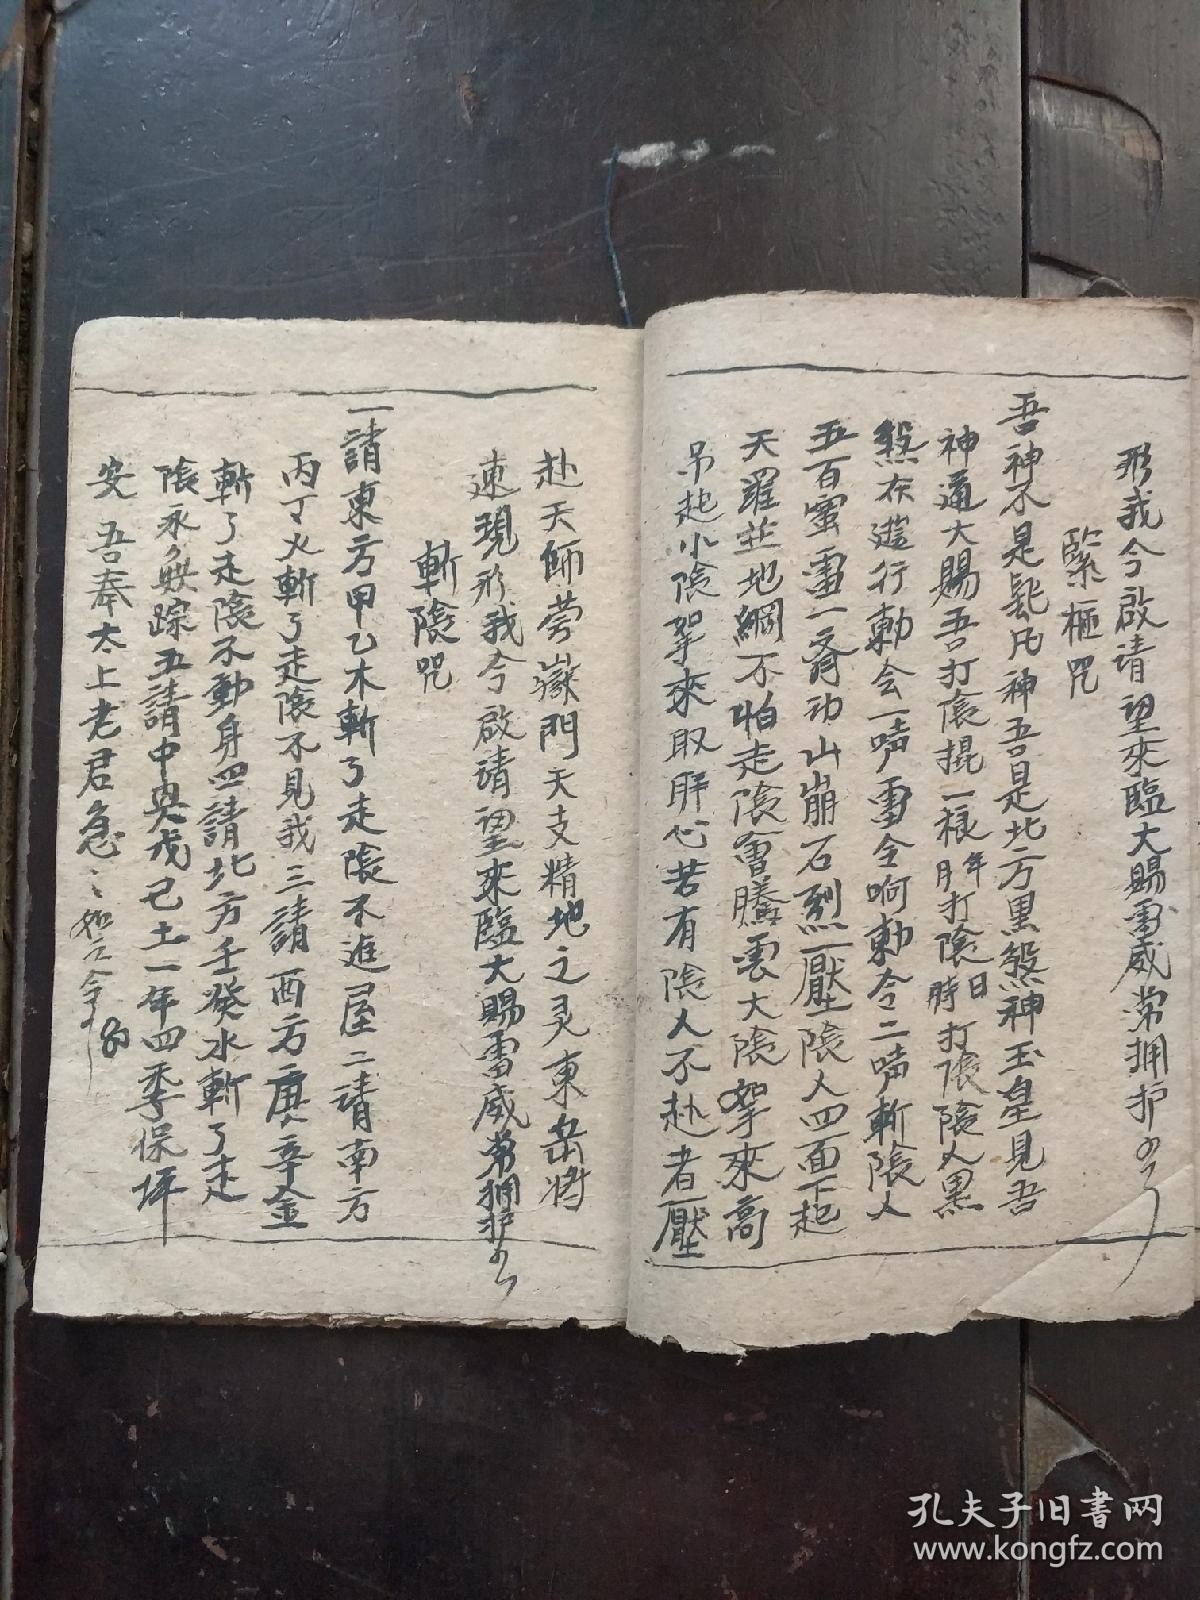 形我今啟请望來臨大賜雷威常拥护
緊極咒
吾神不是髡凡神吾是北方黑煞神玉皇見吾
神通大賜吾打陰捏一根年月打陰日時打陰陰人黑
煞在遊行勅会一嗁雷令响勅令二嗁斬陰人
五百蛮雷一齊功山崩石烈壓陰人四面下起
天羅並地網不怕走陰會騰雲大陰拏來高
吊起小陰拏來取肝心若有陰人不赴者壓
赴天師旁嶽門天支精地之灵東岳將
速現形我今啟請望來臨大賜雷威常拥护
斬陰咒
一請東方甲乙木斬了走陰不進屋二请南方
丙丁火斬了走陰不見我三請西方庚辛金
斬了走陰不動身四請北方壬癸水斬了走
陰永無踪五請中央戊己土一年四季保坪
安 吾奉太上老君急〻如令
孔夫子旧书网
www.kongfz.com